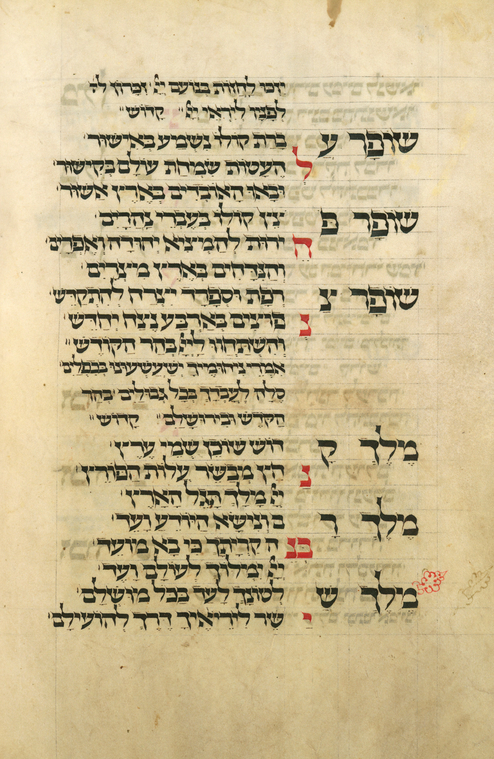 יזכו לחזות בנועם ייי זכרון לי
לפניו ליראי ייי קדוש
שופר ע ברת קולו נשמיע באישור
ל העלות שמחת עולם בקישור
ובאו האובדים בארץ אשור
שופר פ יצץ קולו בעברי נהרים
ח ידות להמציא יהודה ואפרים
והנדחים בארץ מצרים
שופר צ רפת וספרד יצרח להתקדש
נ פוצים בארבע נצח יחדש
והשתחוו לייי בהר הקודש
אמרי ניחומיך ישעשעוני בכפלים
סלה לעבדך בכל גבולים בהר
הקדש ובירושלם קדוש
מלך ק דוש שוכן שמי ערץ
נ הץ מבשר עלות הפורץ
ייי מלך תגל הארץ
מלך ר ב ונושא היודע ועד
בנ ה קריתך כי בא מועד
ייי ימלוך לעולם ועד
מלך ש לטונך לעד בכל מושלים
י שר לידידיך דרך להועילם